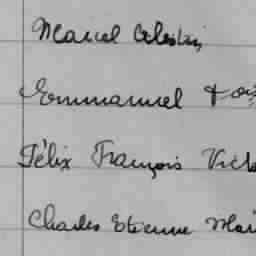 Marcel Celestin,
Emmanuel
Félix François
Charles Etienne